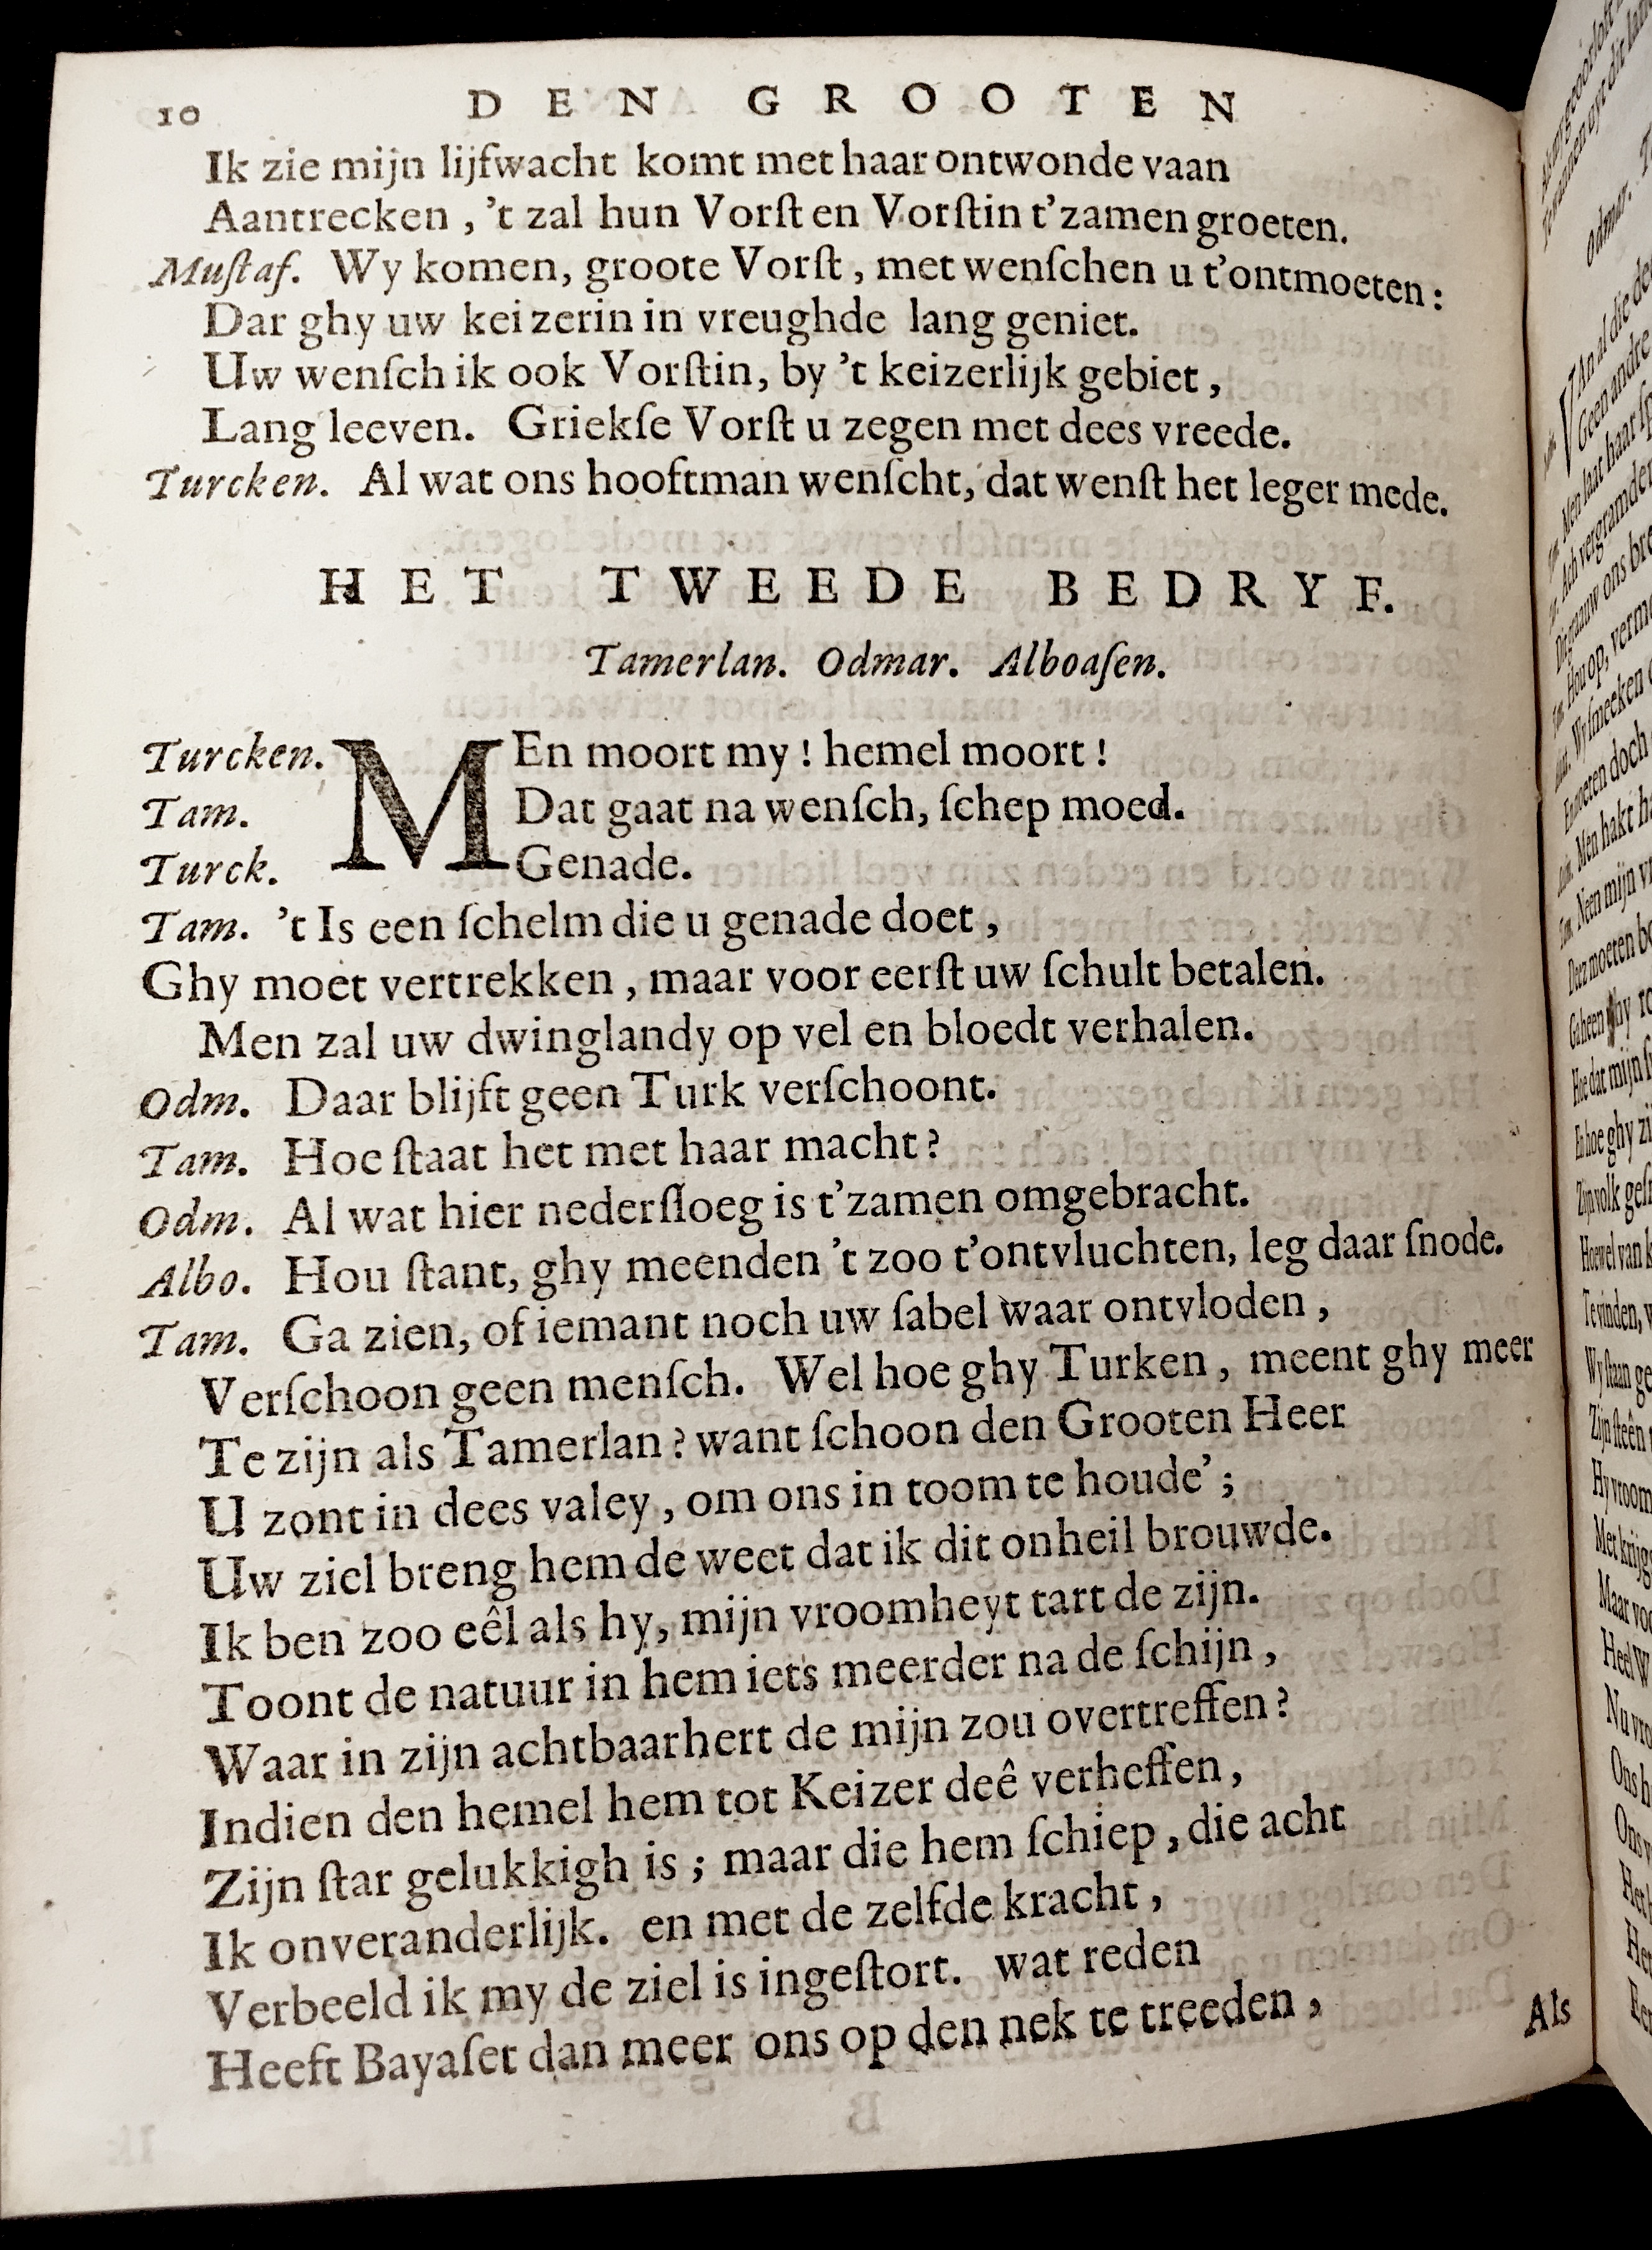 10 DEN GROOTEN
Ik zie mijn lijfwacht komt met haar ontwonde vaan
Aantrecken , 't zal hun Vorſt en Vorſtin t'zamen groeten.
Muſtaf. Wy komen, groote Vorſt , met wenſchen u t'ontmoeten :
Dar ghy uw keizerin in vreughde lang geniet.
Uw wenſch ik ook Vorſtin, by 't keizerlijk gebiet ,
Lang leeven. Griekſe Vorſt u zegen met dees vreede.
Turcken. Al wat ons hooftman wenſcht, dat wenſt het leger mede.
HET TWEEDE BEDRYF.
Tamerlan. Odmar. Alboaſen.
Turcken. MEn moort my ! hemel moort !
Tam. Dat gaat na wenſch, ſchep moed.
Turck. Genade.
Tam. 't Is een ſchelm die u genade doet ,
Ghy moet vertrekken , maar voor eerſt uw ſchult betalen.
Men zal uw dwinglandy op vel en bloedt verhalen.
Odm. Daar blijft geen Turk verſchoont.
Tam. Hoe ſtaat het met haar macht ?
Odm. Al wat hier nederſloeg is t'zamen omgebracht.
Albo. Hou ſtant, ghy meenden 't zoo t'ontvluchten, leg daar ſnode.
Tam. Ga zien, of iemant noch uw ſabel waar ontvloden ,
Verſchoon geen menſch. Wel hoe ghy Turken , meent ghy meer
Te zijn als Tamerlan ? want ſchoon den Grooten Heer
U zont in dees valey , om ons in toom te houde' ;
Uw ziel breng hem de weet dat ik dit onheil brouwde.
Ik ben zoo eêl als hy, mijn vroomheyt tart de zijn.
Toont de natuur in hem iets meerder na de ſchijn ,
Waar in zijn achtbaarhert de mijn zou overtreffen ?
Indien den hemel hem tot Keizer deê verheffen ,
Zijn ſtar gelukkigh is ; maar die hem ſchiep , die acht
Ik onveranderlijk. en met de zelfde kracht ,
Verbeeld ik my de ziel is ingeſtort. wat reden
Heeft Bayaſet dan meer ons op den nek te treeden ,
Als